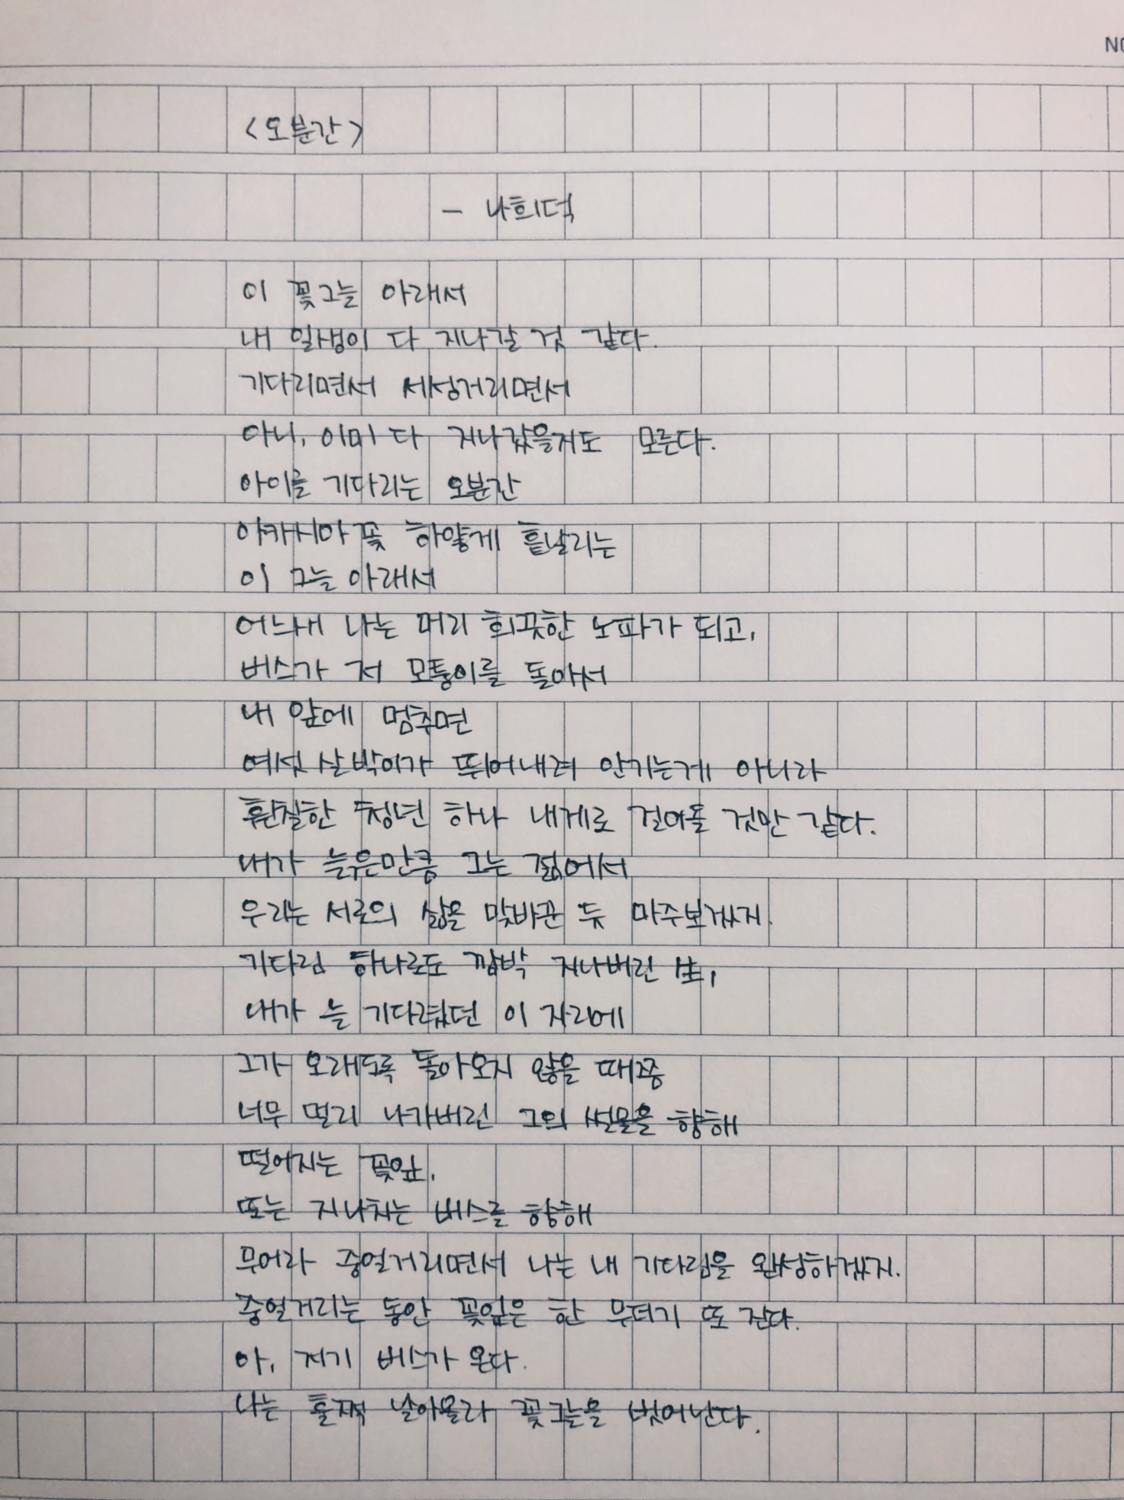 NO
<오분간>
- 나희덕
이 꽃그늘 아래서
내 일생이 다 지나갈 것 같다.
기다리면서 서성거리면서
아니, 이미 다 지나갔을지도 모른다.
아이를 기다리는 오분간
아카시아꽃 하얗게 흩날리는
이 그늘 아래서
어느새 나는 머리 희끗한 노파가 되고,
버스가 저 모퉁이를 돌아서
내 앞에 멈추면
여섯 살박이가 뛰어내려 안기는게 아니라
훤칠한 청년 하나 내게로 걸어올 것만 같다.
내가 늙은만큼 그는 젊어서
우리는 서로의 삶을 맞바꾼 듯 마주보겠지.
기다림 하나로도 깜박 지나버린 生,
내가 늘 기다렸던 이 자리에
그가 오래도록 돌아오지 않을 때쯤
너무 멀리 나가버린 그의 썰물을 향해
떨어지는 꽃잎,
또는 지나치는 버스를 향해
무어라 중얼거리면서 나는 내 기다림을 완성하겠지.
중얼거리는 동안 꽃잎은 한 무더기 또 진다.
아, 저기 버스가 온다.
나는 훌쩍 날아올라 꽃그늘을 벗어난다.